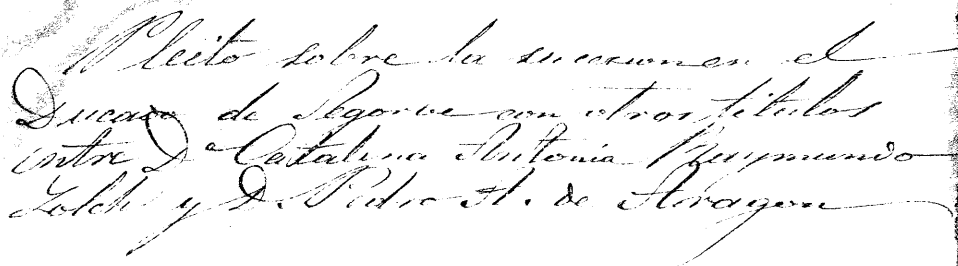 Pleito sobre la sucesion en el
Ducado de Segorve con otros titulos
entre Dª Catalina Antonia Reymundo
Folch y D. Pedro A. de Aragon